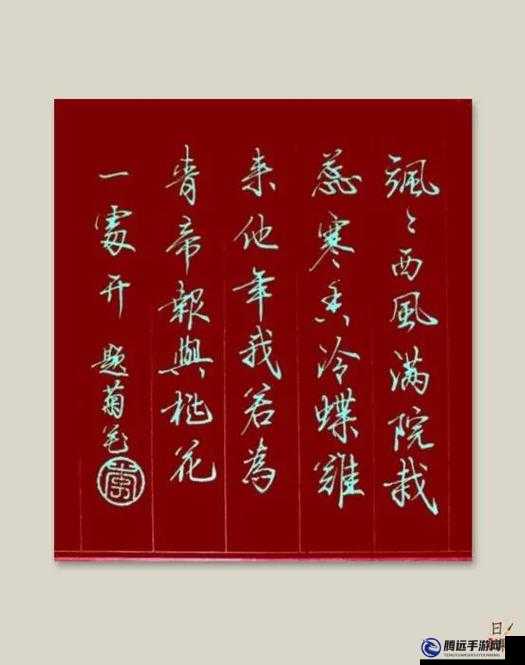 飒〻西風满院栽
蕊寒香冷蝶難
来他年我若為
青帝報與桃花
一處开 题菊花
腾远手游网